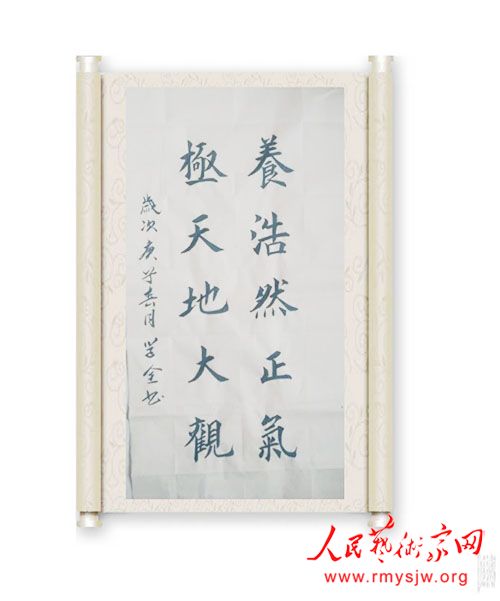 養浩然正氣
極天地大觀
歲次庚子春月学全书
人民藝術家网
www.rmysjw.org